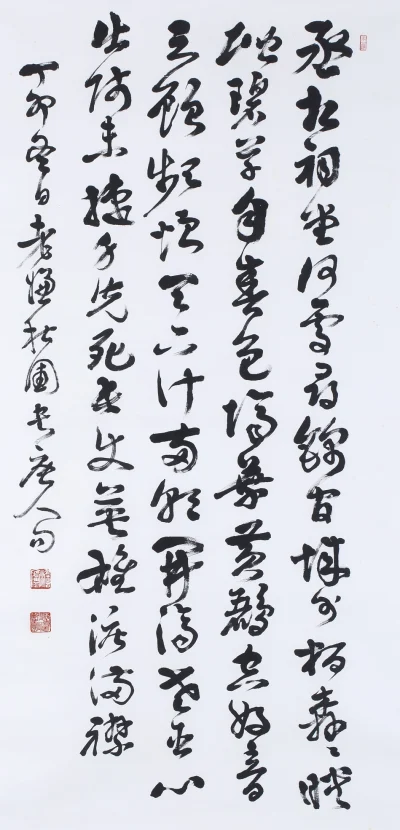 丞相祠堂何處尋錦官城外柏森〻映
堦碧草自春色隔葉黃鸝空好音
三顧頻煩天下計兩朝開濟老臣心
出師未捷身先死長使英雄淚滿襟
丁卯冬日老慵秋圃書唐人句